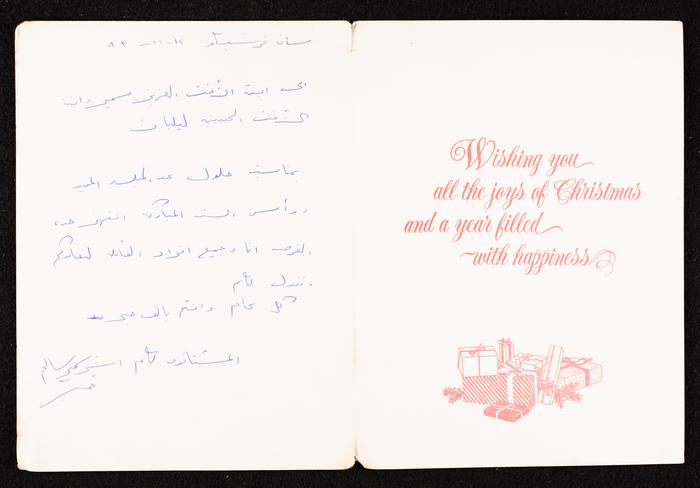 سان فرنسيسكو ١٢-١١-٨٣
الى ابنة الأخت العزيزة وابنة
الأخت الحبيبة ليليان
بمناسبة حلول عيد الميلاد المجيد
ورأس السنة المباركة انتهز هذه
الفرصة انا وجميع افراد العائلة لنعايدكم
ونقول لكم
كل عام وانتم بالف خير
المشتاقون لكم
Wishing you
all the joys of Christmas
and a year filled
with happiness